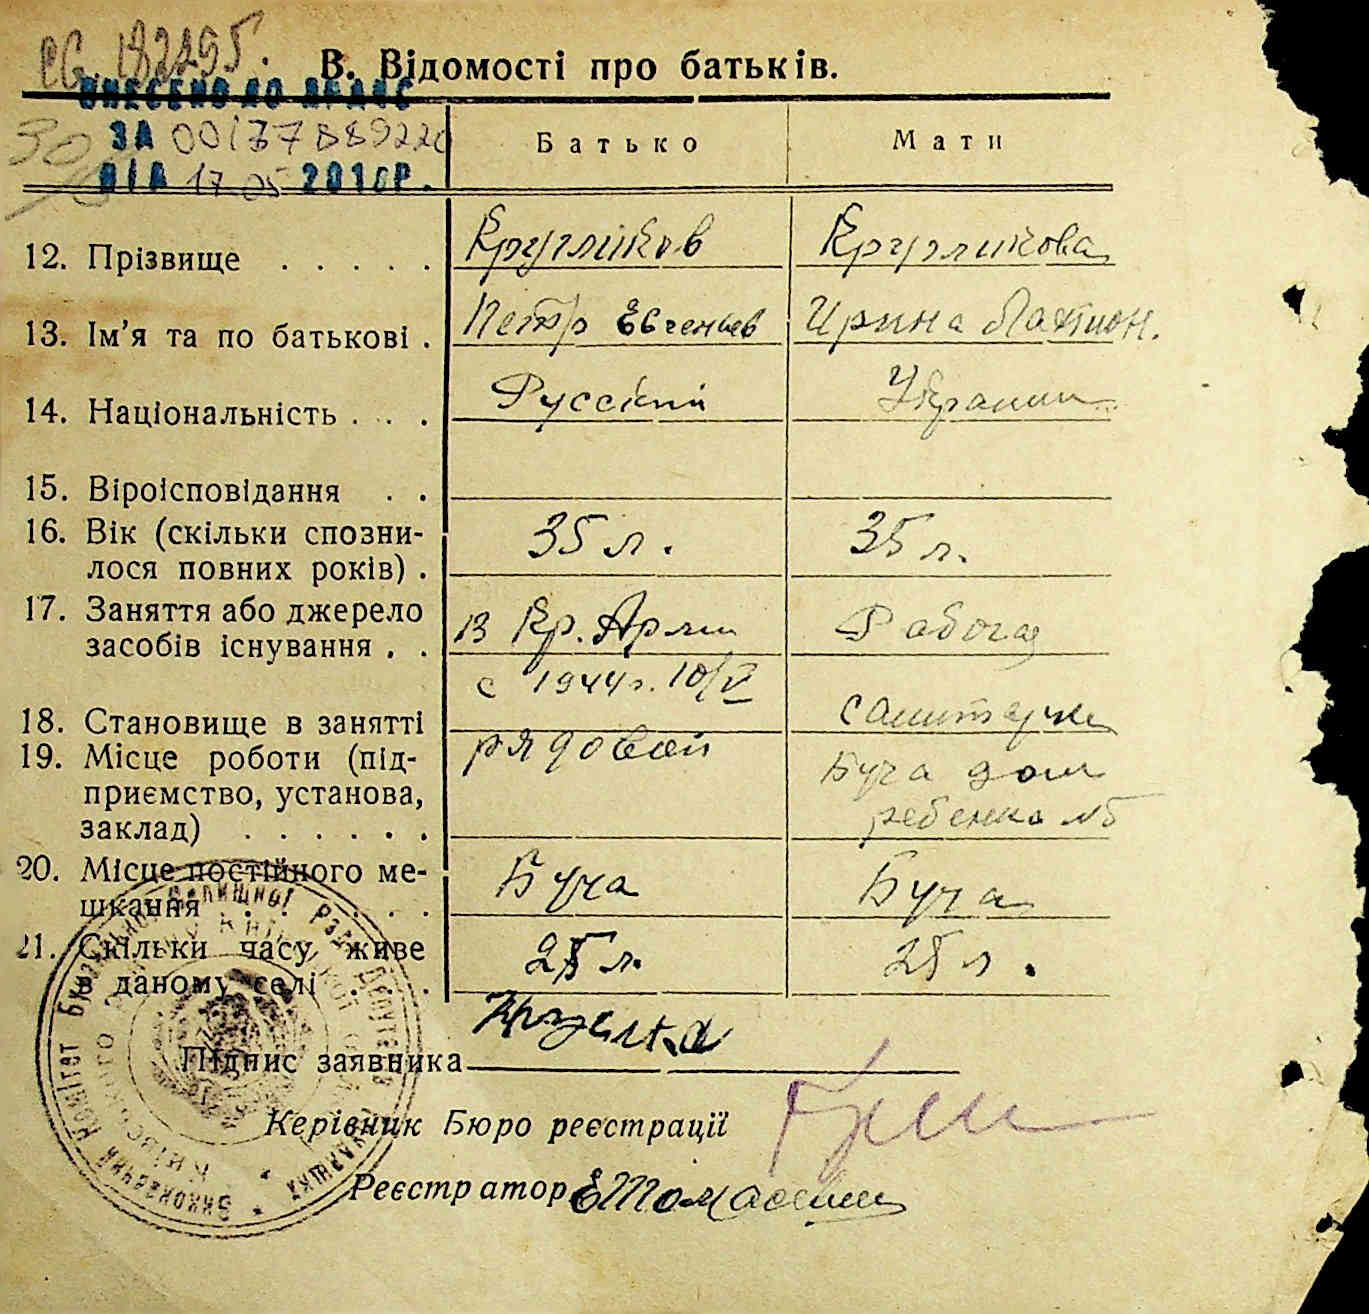 182295.
В. Відомості про батьків.
ВНЕСЕНО ДО ДРАЦС
ЗА 00177889220
ВІД 17.05 2010Р.
Батько Мати
12. Прізвище . . . . . Кругликов Кругликова
13. Ім'я та по батькові . Петр Евгеньев Ирина
14. Національність . . . Русский Украин
15. Віроісповідання . .
16. Вік (скільки спозни-
лося повних років) . 35 л. 35 л.
17. Заняття або джерело
засобів існування . . в Кр. Арми Работа
с 1944 г. 10/V
18. Становище в занятті санитарка
19. Місце роботи (під- рядовой Буча дом
приємство, установа, ребенка №5
заклад) . . . . . .
20. Місце постійного ме-
шкання . . . . . Буча Буча
21. Скільки часу живе
в даному селі . . . 25 л. 25 л.
Підпис заявника
Керівник Бюро реєстрації
Реєстратор